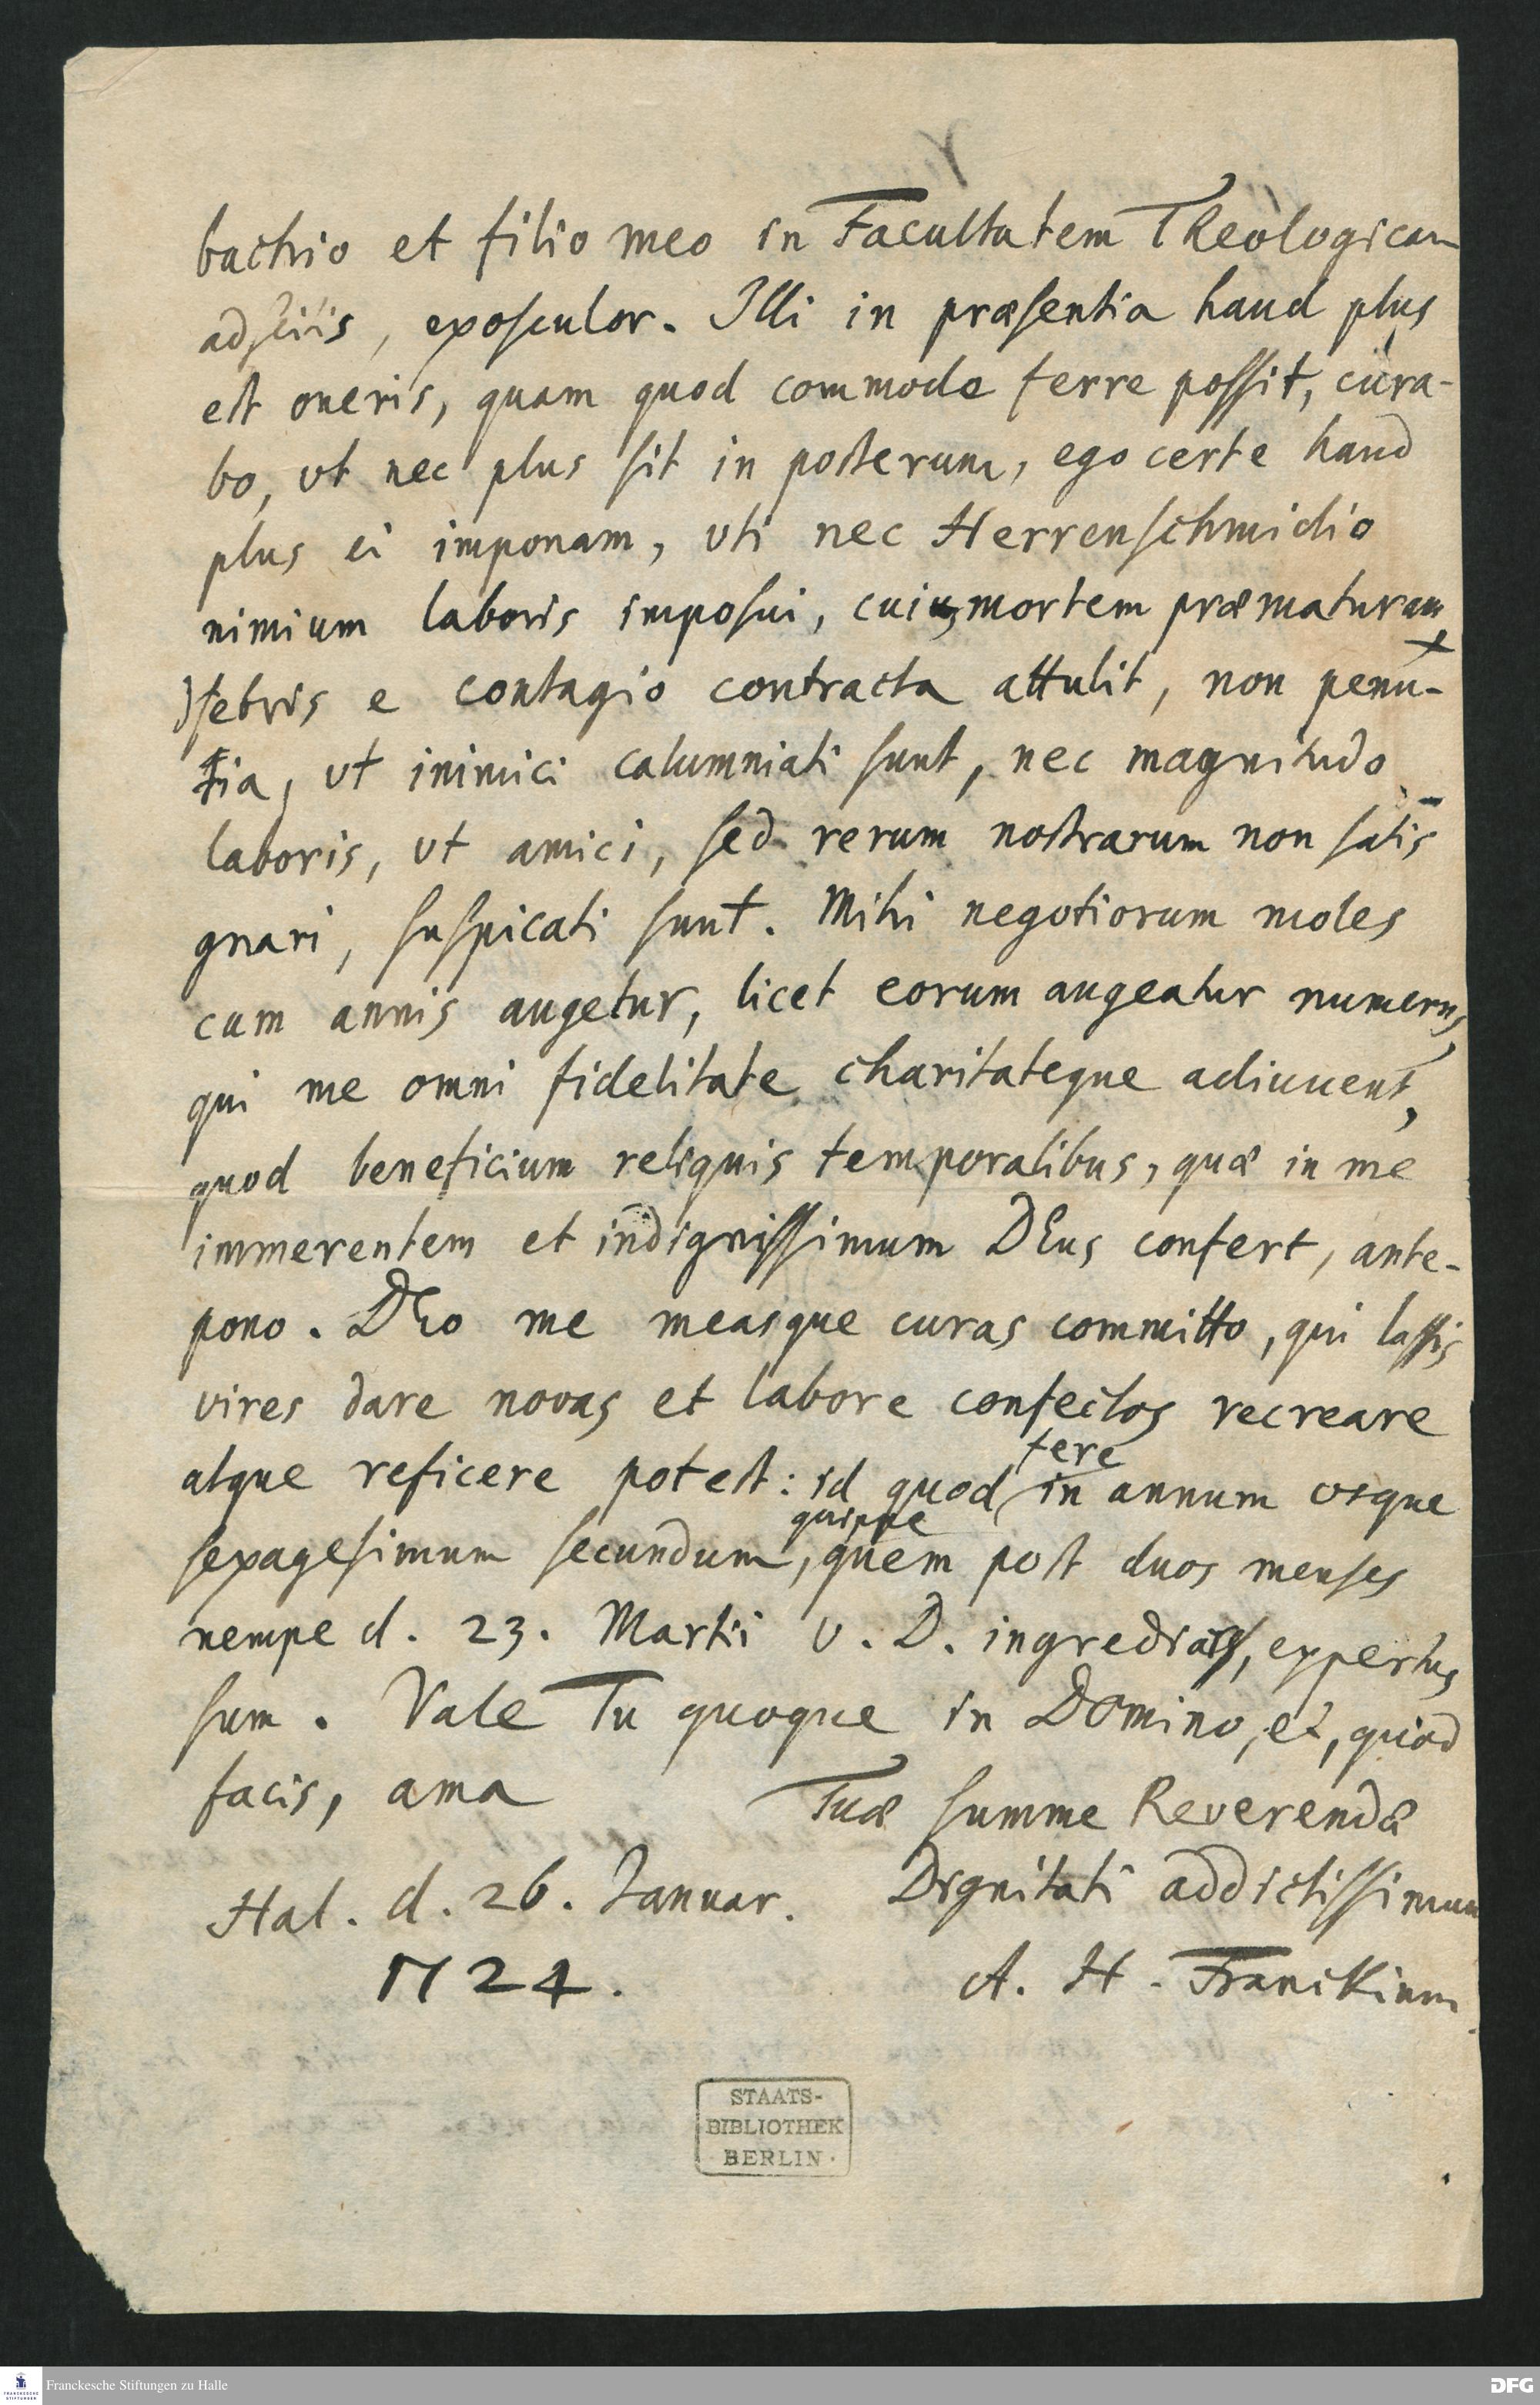 bachio et filio meo in Facultatem Theologicam
adsciis, exosculor. Illi in præsentia haud plus
est oneris, quam quod commode ferre possit, cura-
bo, vt nec plus sit in posterum, ego certe haud
plus ei imponam, vti nec Herrenschmidio
nimium laboris imposui, cuius mortem præmaturam
febris e contagio contracta attulit, non penu-
ria, vt inimici calumniati sunt, nec magnitudo
laboris, vt amici, sed rerum nostrarum non satis
gnari, suspicati sunt. Mihi negotiorum moles
cum annis augetur, licet eorum augeatur numerus,
qui me omni fidelitate charitateque adiuuent,
quod beneficium reliquis temporalibus, quæ in me
immerentem et indignissimum DEus confert, ante-
pono. DEo me measque curas committo, qui lassis
vires dare novas et labore confectos recreare
atque reficere potest: id quod fere in annum vsque
sexagesimum secundum, quippe quem post duos menses
nempe d. 23. Martii v. D. ingrediar, expertus
sum. Vale Tu quoque in Domino, et, quod
facis, ama
Tuæ summe Reverendæ
Dignitati addictissimum
Hal. d. 26. Januar.
1724.
A. H. Franckium.
STAATS-
BIBLIOTHEK
BERLIN
Franckesche Stiftungen zu Halle
DFG